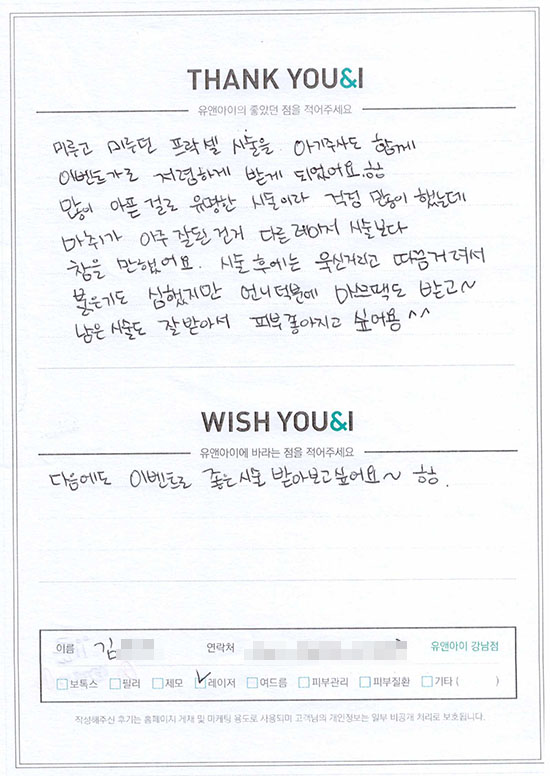 THANK YOU&I
유앤아이의 좋았던 점을 적어주세요
미루고 미루던 프락셀 시술을 아기주사도 함께
이벤트가로 저렴하게 받게 되었어요 ㅎㅎ
많이 아픈 걸로 유명한 시술이라 걱정 많이 했는데
마취가 아주 잘된 건지 다른 레이저 시술보다
참을 만했어요. 시술 후에는 욱신거리고 따끔거려서
붉은기도 심했지만 언니덕분에 마스크팩도 받고~
남은 시술도 잘 받아서 피부 좋아지고 싶어용^^
WISH YOU&I
유앤아이에 바라는 점을 적어주세요
다음에도 이벤트로 좋은 시술 받아보고싶어요~ ㅎㅎ.
이름 김 연락처 유앤아이 강남점
보톡스 필러 제모 레이저 여드름 피부관리 피부질환 기타 ( )
작성해주신 후기는 홈페이지 게재 및 마케팅 용도로 사용되며 고객님의 개인정보는 일부 비공개 처리로 보호됩니다.